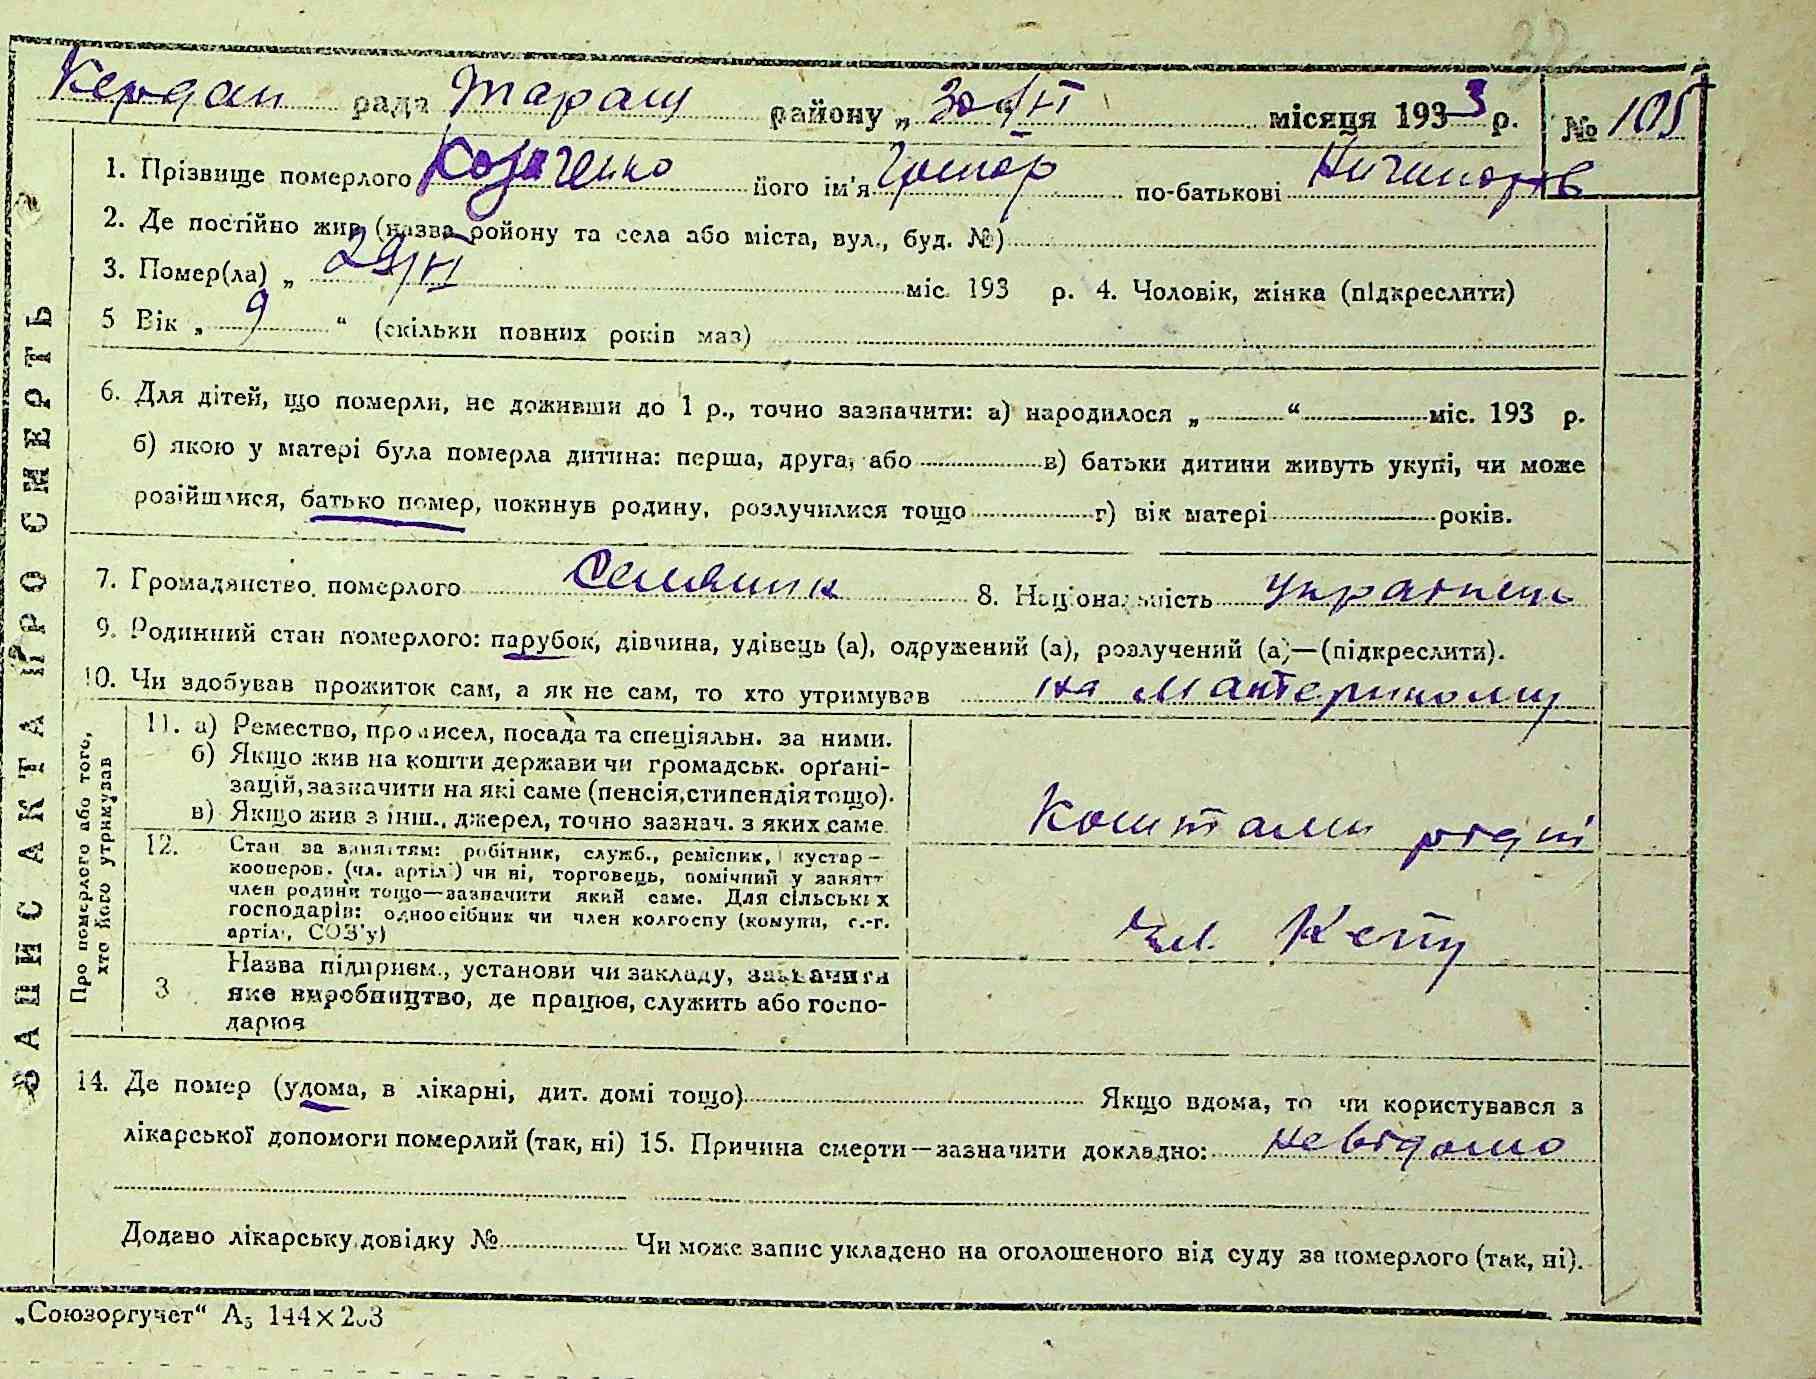 22
Кердан рада Таращ району „ 30/VI “ місяця 1933 р. № 105
1. Прізвище померлого Козаченко його ім'я по-батькові Ничипорів
2. Де постійно жив (назва ройону та села або міста, вул., буд. №)
3. Помер(ла) „ 29/VI міс. 193 р. 4. Чоловік, жінка (підкреслити)
5 Вік „ 9 “ (скільки повних років має)
6. Для дітей, що померли, не доживши до 1 р., точно зазначити: а) народилося „ “ міс. 193 р.
б) якою у матері була померла дитина: перша, друга, або в) батьки дитини живуть укупі, чи може
розійшлися, батько помер, покинув родину, розлучилися тощо г) вік матері років.
7. Громадянство померлого Селянин 8. Національність українець
9. Родинний стан померлого: парубок, дівчина, удівець (а), одружений (а), розлучений (а)—(підкреслити).
10. Чи здобував прожиток сам, а як не сам, то хто утримував на
Про померлого або того, хто його утримував
11. а) Ремество, промисел, посада та спеціяльн. за ними.
б) Якщо жив на кошти держави чи громадськ. орґані-
зацій, зазначити на які саме (пенсія, стипендія тощо).
в) Якщо жив з інш., джерел, точно зазнач. з яких саме
Коштами рідні
12. Стан за заняттям: робітник, служб., ремісник, кустар—
кооперов. (чл. артілі) чи ні, торговець, помічний у занятт
член родини тощо—зазначити який саме. Для сільських
господарів: одноосібник чи член колгоспу (комуни, с.-г.
артілі, СОЗ'у)
чл.
3 Назва підприєм., установи чи закладу, зазначити
яке виробництво, де працює, служить або госпо-
дарює
14. Де помер (удома, в лікарні, дит. домі тощо) Якщо вдома, то чи користувався з
лікарської допомоги померлий (так, ні) 15. Причина смерти—зазначити докладно: невідомо
Додано лікарську довідку № Чи може запис укладено на оголошеного від суду за померлого (так, ні).
ЗАПИС АКТА ПРО СМЕРТЬ
„Союзоргучет“ А5 144×203